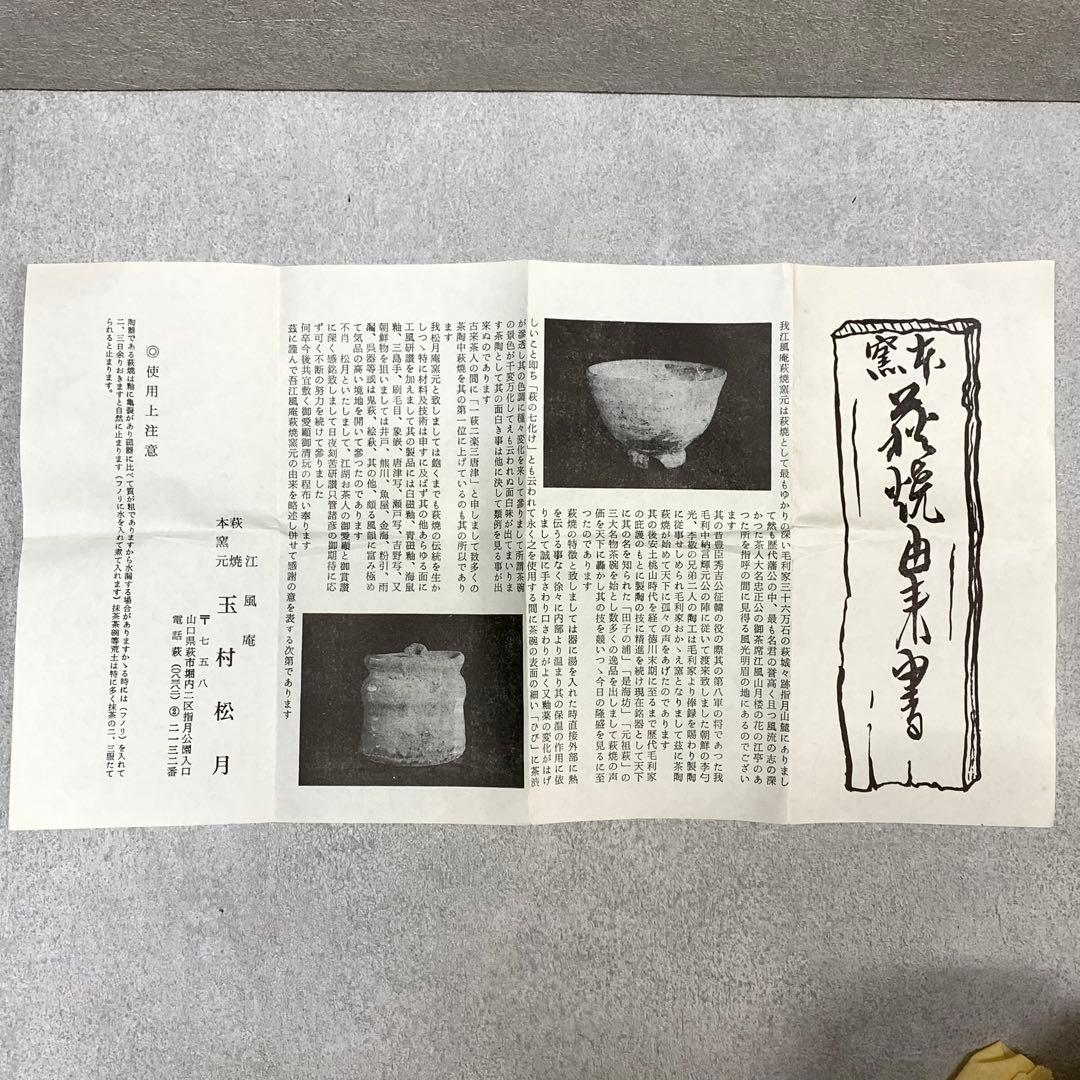 本窯 萩焼由来書
我江風庵萩焼窯元は萩焼として最もゆかりの深い毛利家三十六万石の萩城々跡指月山麓にありまし
て然も歴代藩公の中、最も名君の誉高く且つ風流の志の深
かつた茶人大名忠正公の御茶席江風山月楼の花の江亭のあ
つた所を指呼の間に見得る風光明眉の地にあるのでござい
ます
其の昔豊臣秀吉公征韓の役の際其の第八軍の将であつた我
毛利中納言輝元公の陣に従いて渡来致しました朝鮮の李勺
光、李敬の兄弟二人の陶工は毛利家より俸録を賜わり製陶
に従事せしめられ毛利家おかゝえ窯となりまして茲に茶陶
萩焼が始めて天下に孤々の声をあげたのであります
其の後安土桃山時代を経て徳川末期に至るまで歴代毛利家
の庇護のもとに製陶の技に精進を続け現在銘器として天下
に其の名を知られた「田子の浦」「是海坊」「元祖萩」の
三大名物茶碗を始め数多くの逸品を出しまして萩焼の声
価を天下に轟かし其の技を競いつゝ今日の隆盛を見るに至
つたのであります
萩焼の特徴と致しましては器に湯を入れた時直接外部に熱
を伝うる事なく徐々に内部より温まり其の保温の作用に依
りまして誠に手さわり口さわりがよく又釉薬の変化がはげ
しいこと即ち「萩の七化け」とも云われて永く之を使用する間に茶碗の表面の細い「ひび」に茶渋
が滲透し其の色調に種々変化を来して参りまして所謂茶碗
の景色が千変万化してえも云われぬ面白味が出てまいりま
す茶陶として其の面白き事は他に決して類例を見る事が出
来ぬのであります
古来茶人の間に「一萩二楽三唐津」と申しまして数多くの
茶陶中萩焼を其の第一位に上げているのも其の所以であり
ます
我松月庵窯元と致しましては飽くまでも萩焼の伝統を生か
しつゝ特に材料及技術は申すに及ばず其の他あらゆる面に
工風研讃を加えまして其の製品には白磁釉、青磁釉、海鼠
釉、三島手、刷毛目、象嵌、唐津写、瀬戸写、吉野写、又
朝鮮物を狙いましては井戸、熊川、魚屋、金海、粉引、雨
漏、呉器等或は鬼萩、絵萩、其の他、頗る風韻に富み極め
て気品の高い境地を開いて参つたのであります
不肖 松月といたしまして、江湖お茶人の御愛顧と御賞讃
に深く感銘致しまして日夜刻苦研讃只管諸彦の御期待に応
ず可く不断の努力を続けて参りました
何卒今後共宜敷く御愛顧御清玩の程希い奉ります
茲に謹んで吾江風庵萩焼窯元の由来を略述し併せて感謝の意を表する次第であります
萩焼 江風庵
本窯元 玉村松月
〒七五八
山口県萩市堀内二区指月公園入口
電話萩(〇八三八二)②二一三二番
◎使用上注意
陶器である萩焼は釉に亀裂があり磁器に比べて質が粗でありますから水漏する場合がありますかゝる時には(フノリ)を入れて
二、三日余りおきますと自然に止まります(フノリに水を入れて煮て入れます)抹茶茶碗等荒土は特に多く抹茶の二、三服たて
られると止まります。